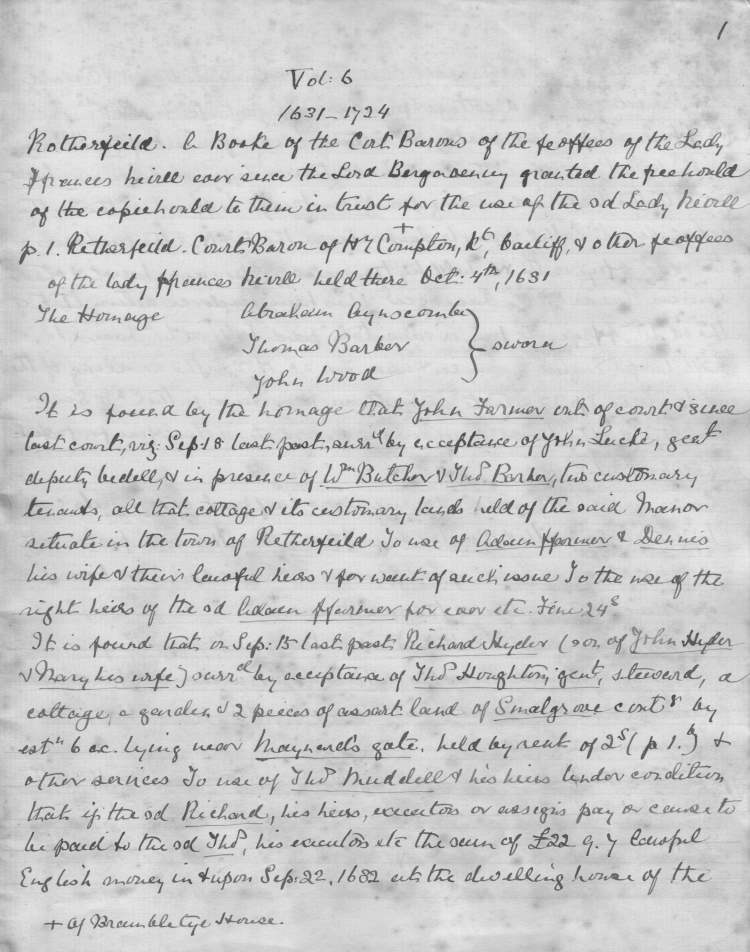 1
Vol: 6
1631–1724
Rotherfeild. A Booke of the Cort Barons of the feoffees of the Lady
ffrances Nevill ever since the Lord Bergavenny granted the freehould
of the copiehould to them in trust for the use of the sd Lady Nevill
p. 1. Retherfeild. Court Baron of Hy Compton, Kt, + bailiff, & other feoffees
of the lady ffrances Nevill held there Oct: 4th, 1631
The Homage Abraham Aynscombe
Thomas Barber } sworn
John Wood
It is found by the homage that John Farmer out of court & since
last court, viz: Sep: 18 last past, surrd by acceptance of John Lucke, gent
deputy bedell, & in presence of Wm Butcher & Thos Barber, two customary
tenants, all that cottage & its customary lands held of the said Manor
situate in the town of Retherfeild To use of Adam ffarmer & Dennis
his wife & their lawful heirs & for want of such issue To the use of the
right heirs of the sd Adam ffarmer for ever etc. Fine 24s
It is found that on Sep: 15 last past Richard Hyder (son of John Hyder
& Mary his wife) surrd by acceptance of Thos Houghton, gent, steward, a
cottage, a garden & 2 pieces of assart land of Smalgrove contg by
estn 6 ac. lying near Maynard's gate. held by rent of 2s (p 1. ) &
other services To use of Thos Muddell & his heirs Under condition
that if the sd Richard, his heirs, executors or assigns pay or cause to
be paid to the sd Thos, his executors etc the sum of £22 9. 7 lawful
English money in & upon Sep: 22, 1632 at the dwelling house of the
+ Of Brambletye House.